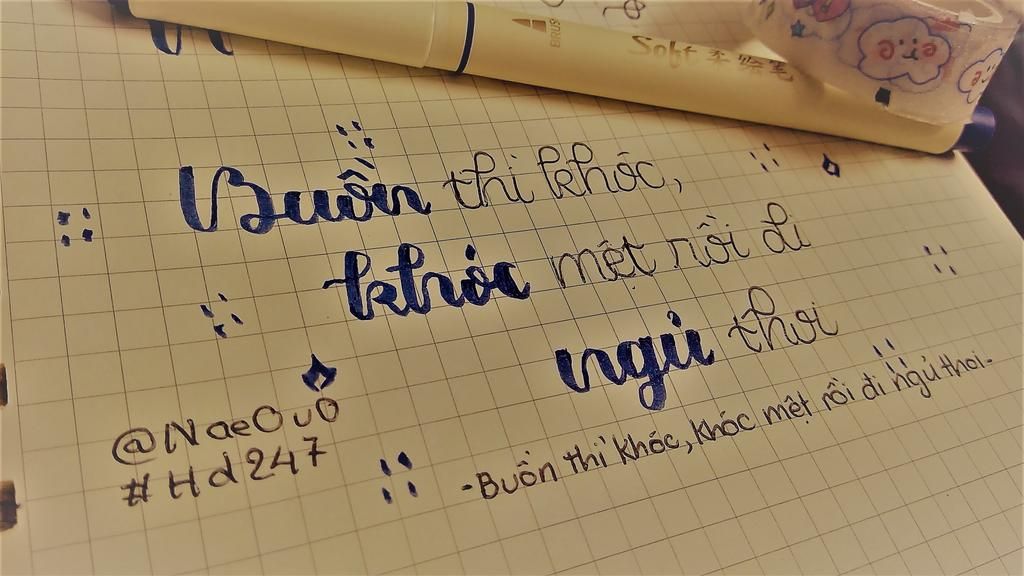 Soft
Buồn thì khóc,
khóc mệt rồi đi
ngủ thôi
@NaeOuO
#Hd247
-Buồn thì khóc, khóc mệt rồi đi ngủ thôi-